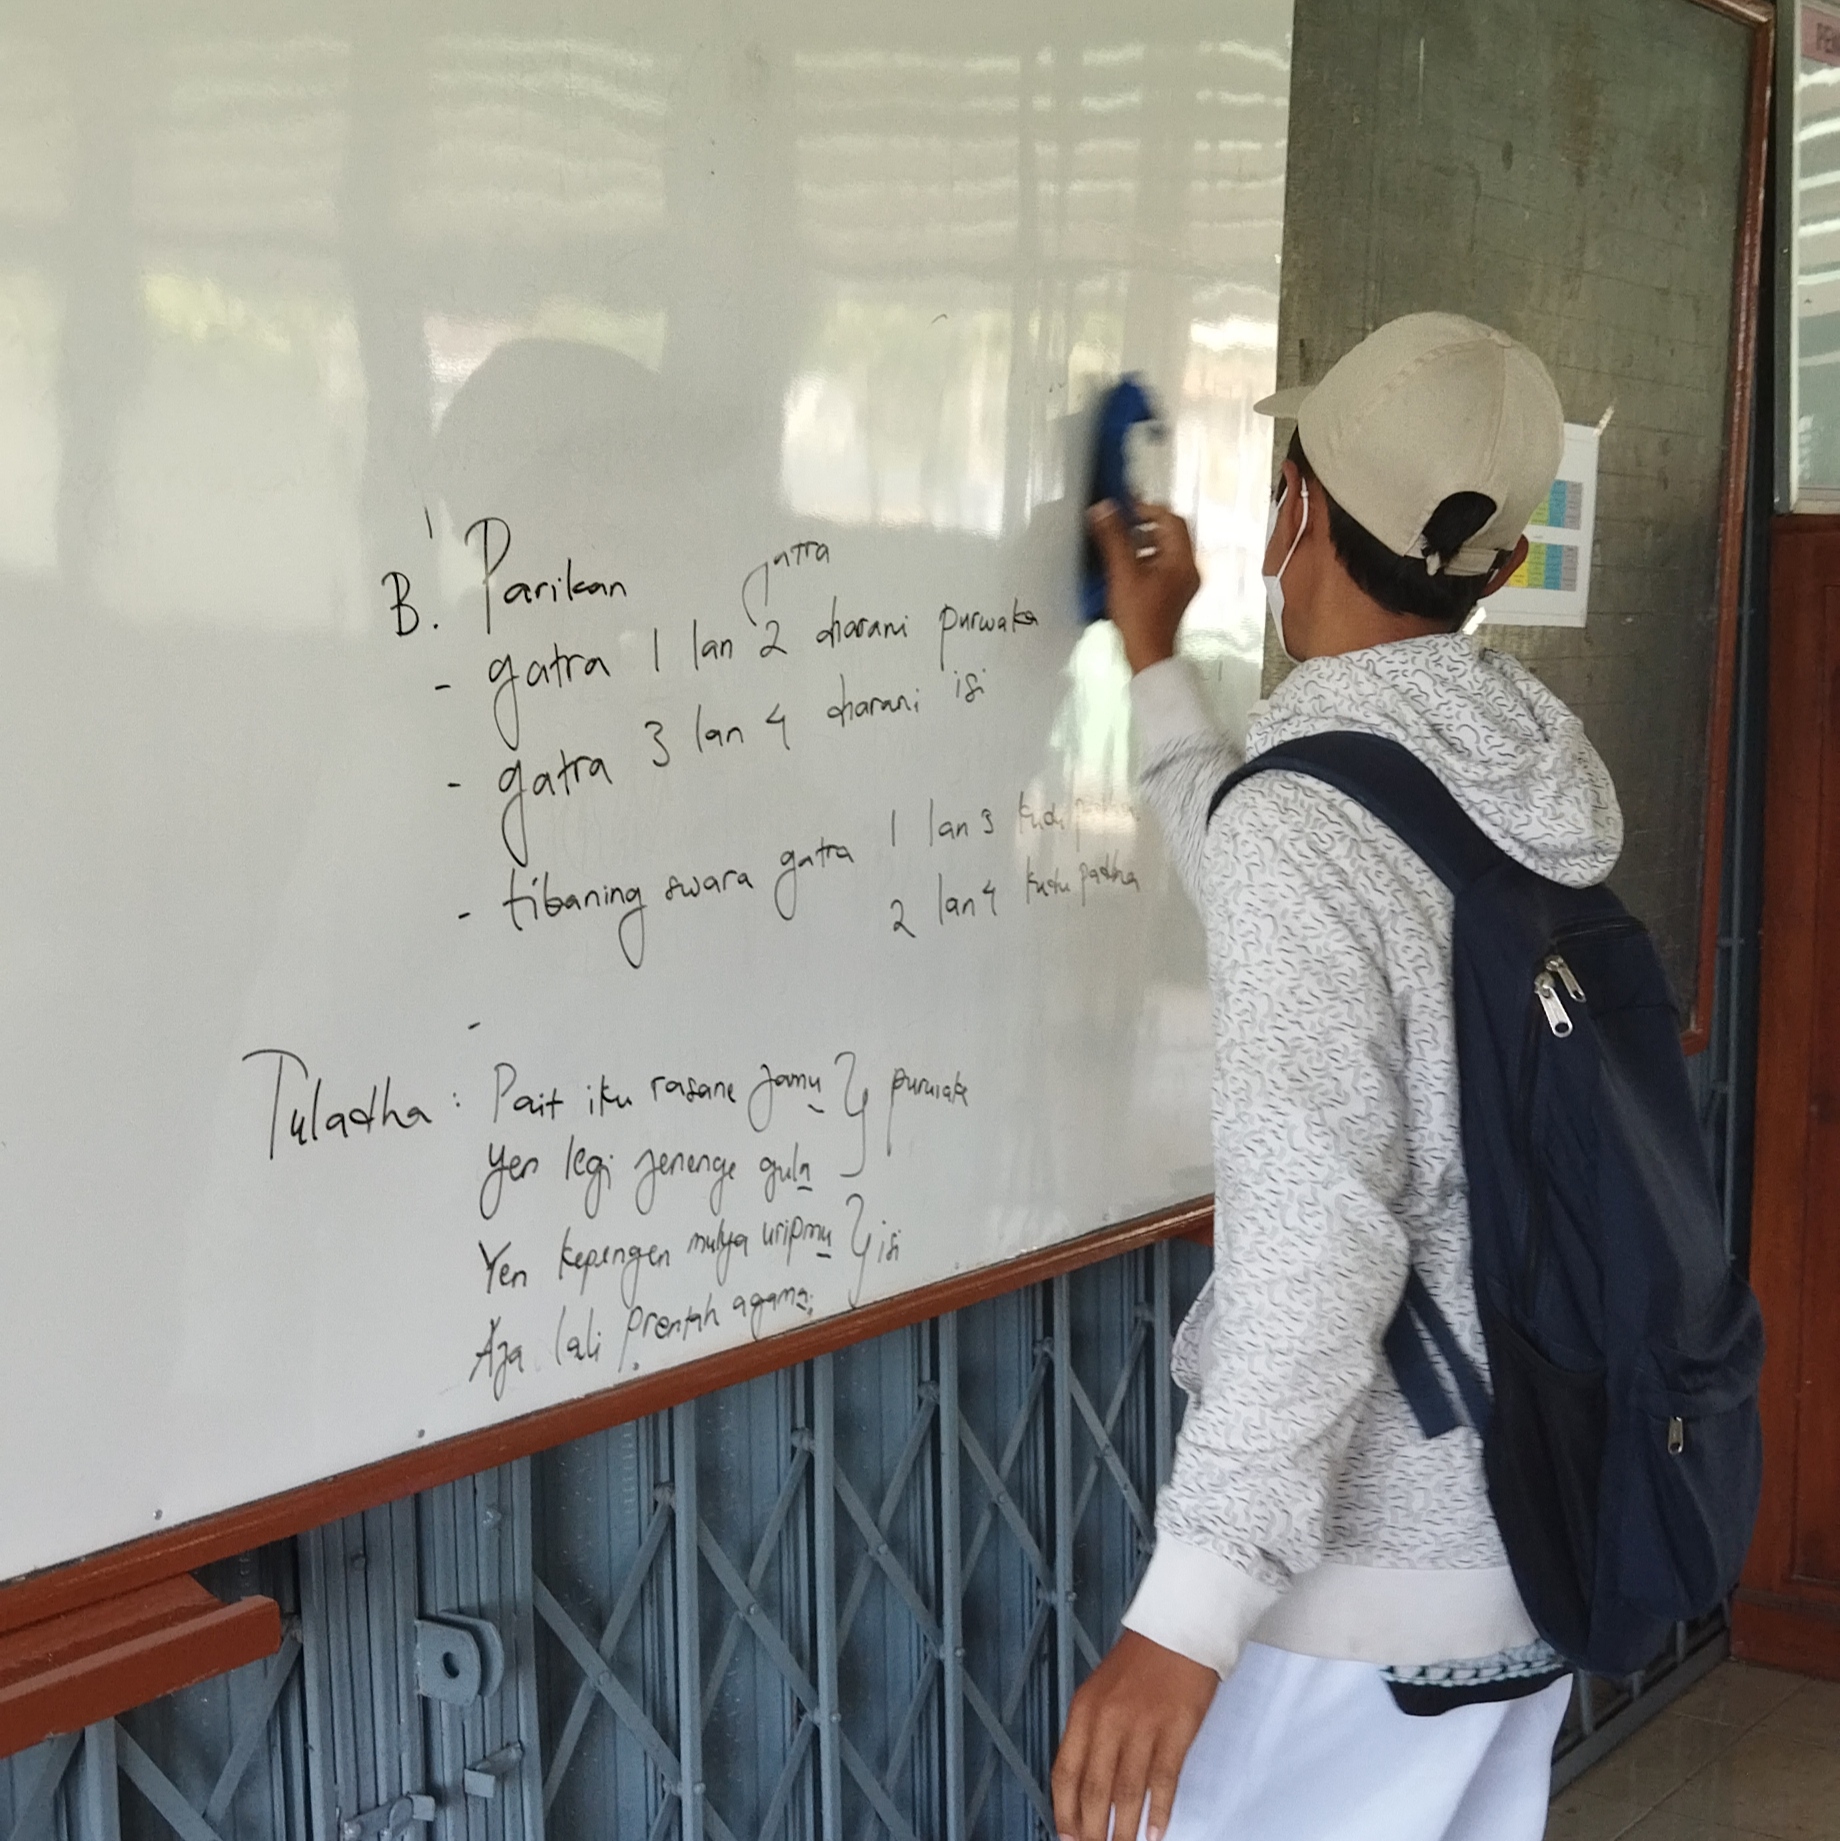 B. Parikan
gatra
- gatra 1 lan 2 diarani purwaka
- gatra 3 lan 4 diarani isi
- tibaning swara gatra 1 lan 3 kudu
2 lan 4 kudu padha
-
Tuladha : Pait iku rasane jamu } purwaka
Yen legi jenenge gula
Yen kepengen mulya uripmu } isi
Aja lali prentah agama.